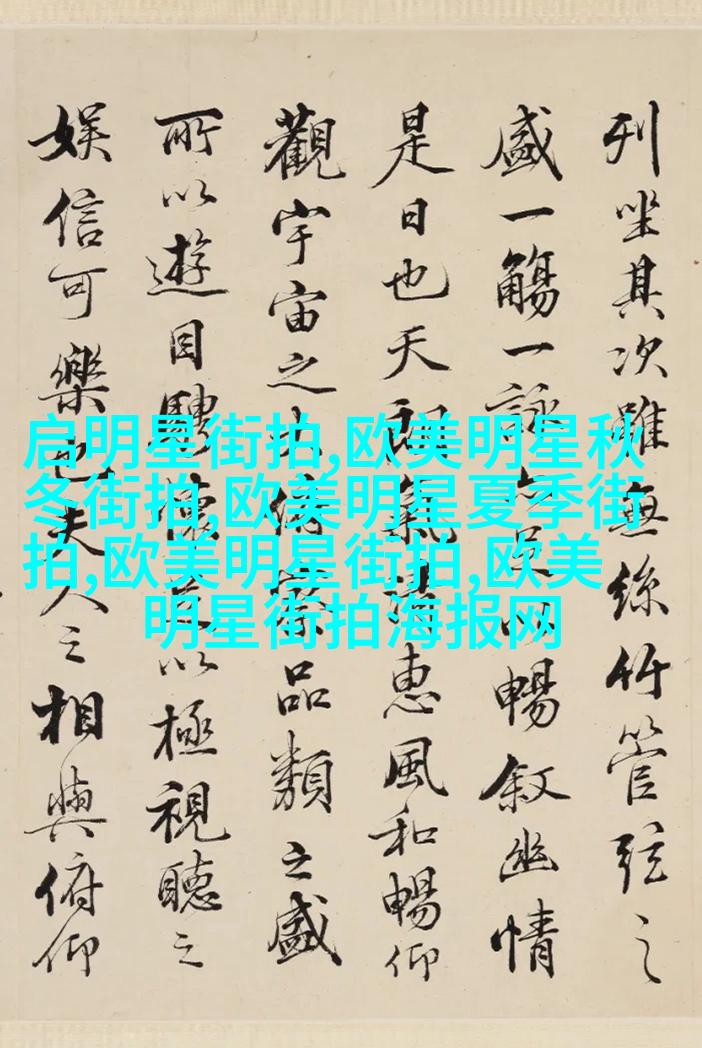 列坐其次雖無絲竹管弦之
盛一觴一詠亦足以暢敘幽情
是日也天朗氣清惠風和暢仰
觀宇宙之大俯察品類之盛
所以遊目騁懷足以極視聽之
娛信可樂也夫人之相與俯仰
启明星街拍,欧美明星秋
冬街拍,欧美明星夏季街
拍,欧美明星街拍,欧美
明星街拍海报网